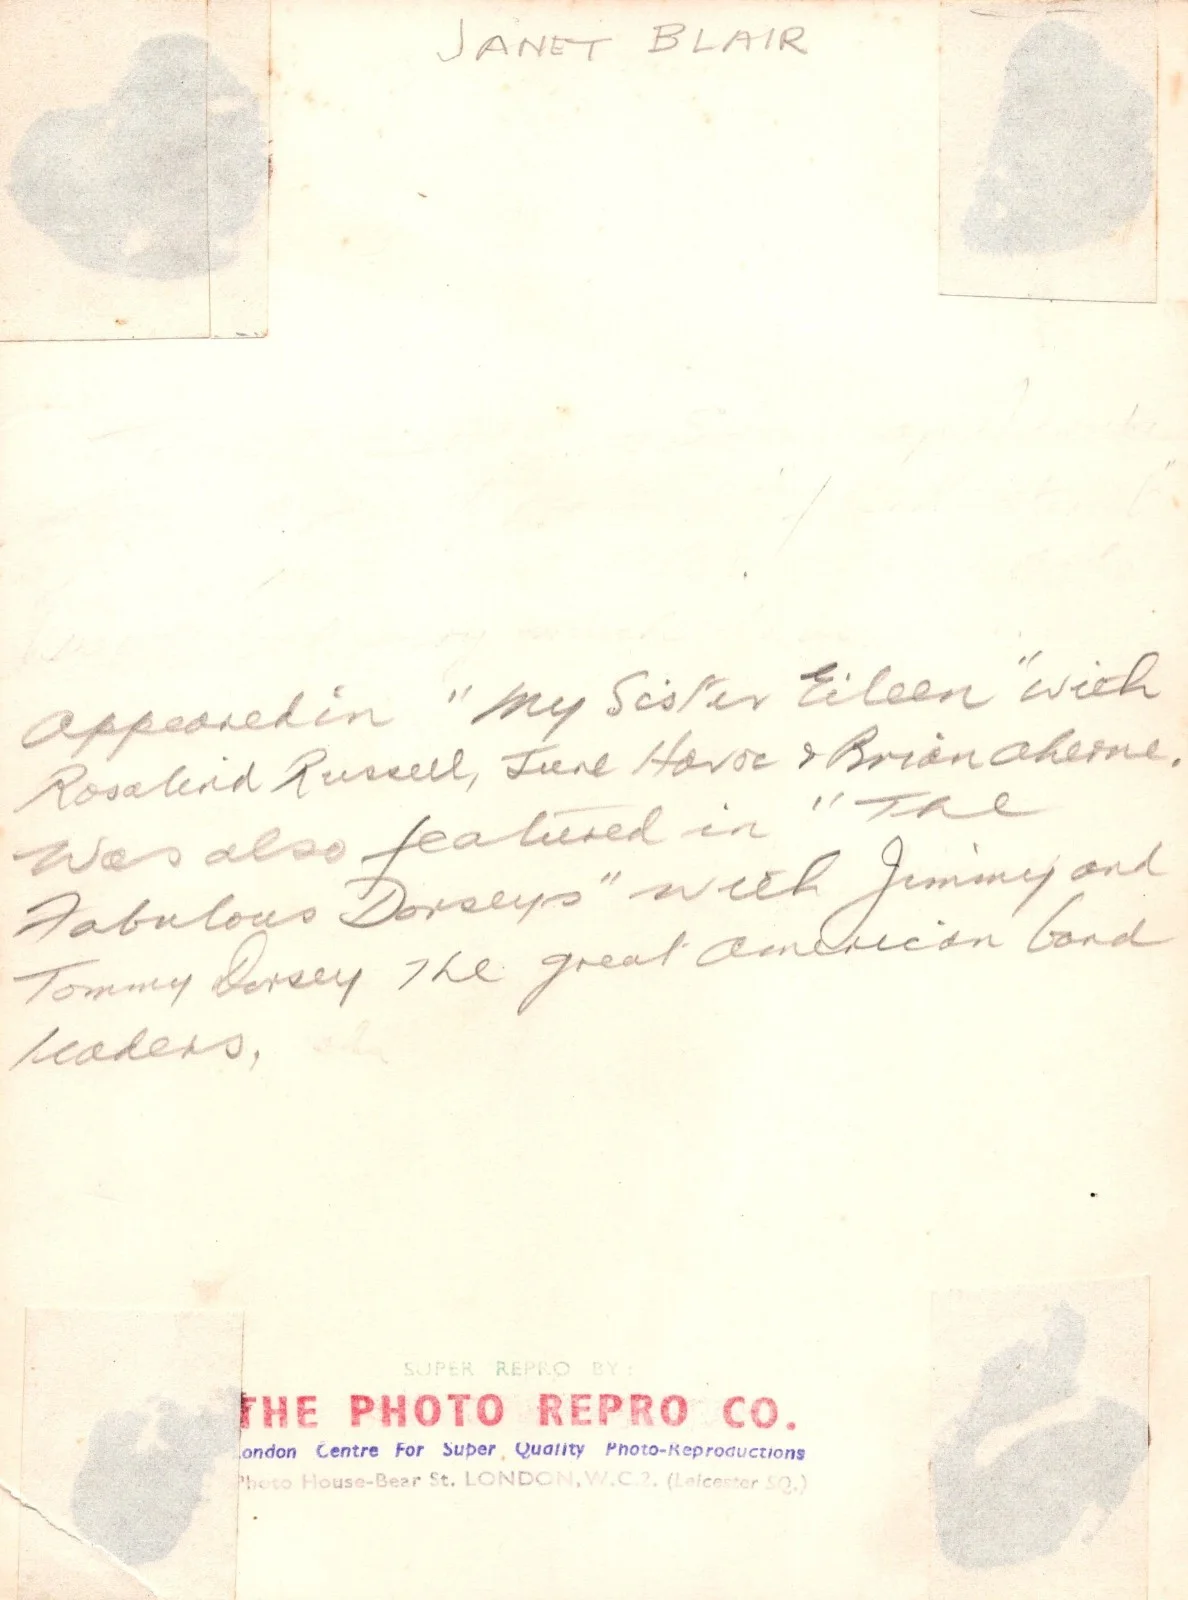 JANET BLAIR
Appeared in "My Sister Eileen" with
Rosalind Russell, June Havoc & Brian Aherne.
Was also featured in "The
Fabulous Dorseys" with Jimmy and
Tommy Dorsey the great american band
leaders,
SUPER REPRO BY:
THE PHOTO REPRO CO.
London Centre For Super Quality Photo-Reproductions
Photo House-Bear St. LONDON, W.C.2. (Leicester SQ.)